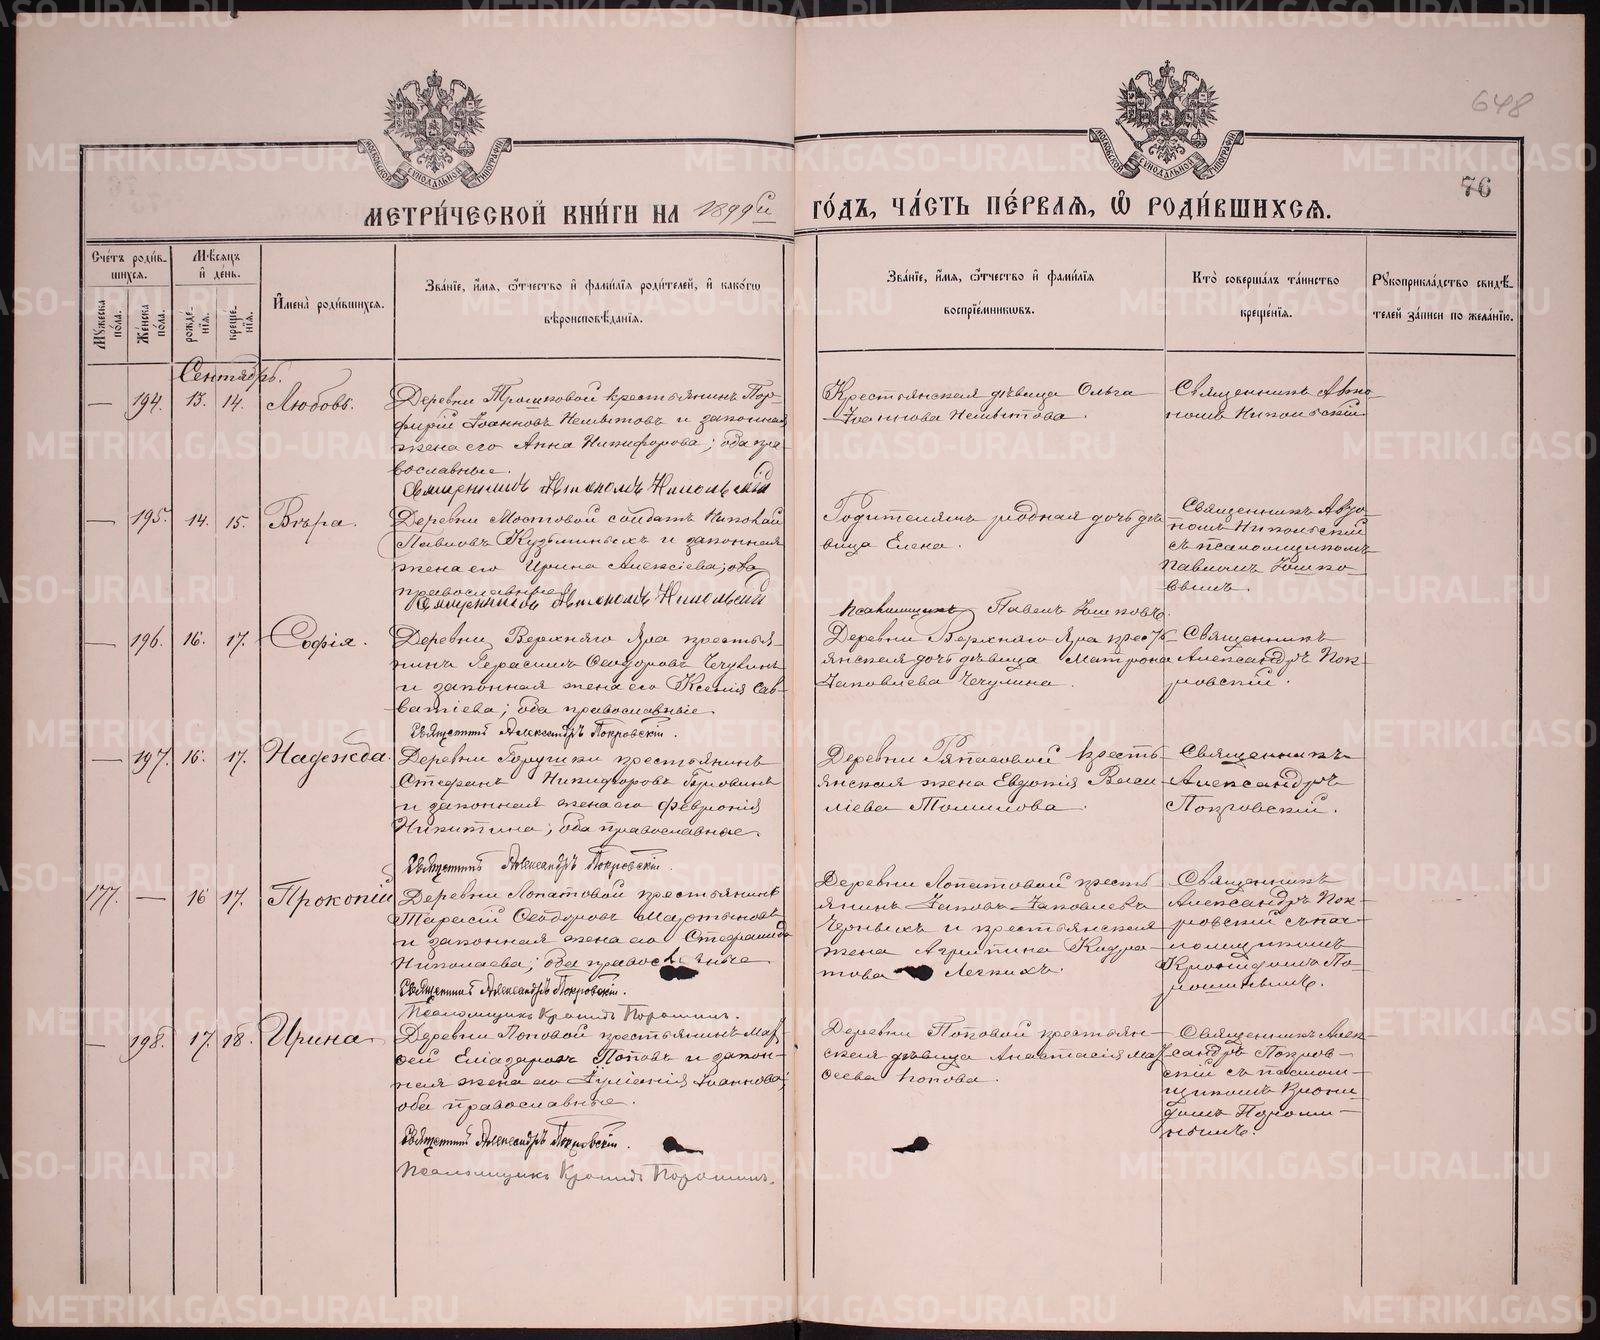 648
76
МОСКОВСКОЙ СУНОДАЛЬНОЙ ТИПОГРАФІИ
МОСКОВСКОЙ СУНОДАЛЬНОЙ ТИПОГРАФІИ
МЕТРИ́ЧЕСКОЙ КНИ́ГИ НА 1899й ГО́ДЪ, ЧА́СТЬ ПЕ́РВАѦ, Ѿ РОДИ́ВШИХСѦ.
Сче́тъ роди́в-
шихся.
Мѣ́сяцъ
и҆ де́нь.
Мꙋ́жеска по́ла.
Же́нска по́ла.
рожде́-нїѧ.
креще́-нїѧ.
И҆мена̀ роди́вшихся.
Зва́нїе, и҆́мѧ, ѻ҆́тчество и҆ фами́лїѧ роди́телей, и҆ како́гѡ
вѣроисповѣ́данїѧ.
Зва́нїе, и҆́мѧ, ѻ҆́тчество и҆ фами́лїѧ
воспрїе́мникѡвъ.
Кто̀ соверша́лъ та́инство
креще́нїѧ.
Рꙋкоприкла́дство свидѣ́-
телей за́писи по жела́нїю.
Сентябрь.
— 194. 13. 14. Любовь.
Деревни Трошковой крестьянинъ Пор-
фирій Іоанновъ Немытовъ и законная
жена его Анна Никифорова; оба пра-
вославные.
Священникъ Автономъ Никольскій
Крестьянская дѣвица Ольга
Іоаннова Немытова.
Священникъ Авто-
номъ Никольскій
— 195. 14. 15. Вѣра.
Деревни Мостовой солдатъ Николай
Павловъ Кузьминыхъ и законная
жена его Ирина Алексіева; оба
православные
Священникъ Автономъ Никольскій
Родителямъ родная дочь дѣ-
вица Елена.
Священникъ Авто-
номъ Никольскій
съ псаломщикомъ
Павломъ Юшко-
вымъ.
Псаломщикъ Павелъ Юшковъ.
— 196. 16. 17. Софія.
Деревни Верхняго Яра крестья-
нинъ Герасимъ Ѳеодоровъ Чечулинъ
и законная жена его Ксенія Сав-
ватіева; оба православные
Священникъ Александръ Покровскій.
Деревни Верхняго Яра крест-
янская дочь дѣвица Матрона
Іаковлева Чечулина.
Священникъ
Александръ Пок-
ровскій.
— 197. 16. 17. Надежда.
Деревни крестьянинъ
Стефанъ Никифоровъ
и законная жена его Февронія
Никитина; оба православные.
Священникъ Александръ Покровскій.
Деревни Ряпасовой кресть-
янская жена Евдокія Васи-
ліева Томилова.
Священникъ
Александръ
Покровскій.
177. — 16 17. Прокопій
Деревни Лопатовой крестьянинъ
Тарасій Ѳеодоровъ Мартыновъ
и законная жена его Стефанида
Николаева; оба православные
Священникъ Александръ Покровскій.
Псаломщикъ Кронидъ Порошинъ.
Деревни Лопатовой кресть-
янинъ Іаковъ Іаковлевъ
Черныхъ и крестьянская
жена Агрипина Кодра-
това Легкихъ.
Священникъ
Александръ Пок-
ровскій съ пса-
ломщикомъ
Кронидомъ По-
рошинымъ.
— 198. 17. 18. Ирина
Деревни Поповой крестьянинъ Мат-
ѳей Еліазаровъ Поповъ и закон-
ная жена его Іуліанія Іоаннова;
оба православные.
Священникъ Александръ Покровскій.
Псаломщикъ Кронидъ Порошинъ.
Деревни Поповой крестьян-
ская дѣвица Анастасія Мат-
ѳеева Попова.
Священникъ Алек-
сандръ Покров-
скій съ псалом-
щикомъ Крони-
домъ Пороши-
нымъ.
METRIKI.GASO-URAL.RU